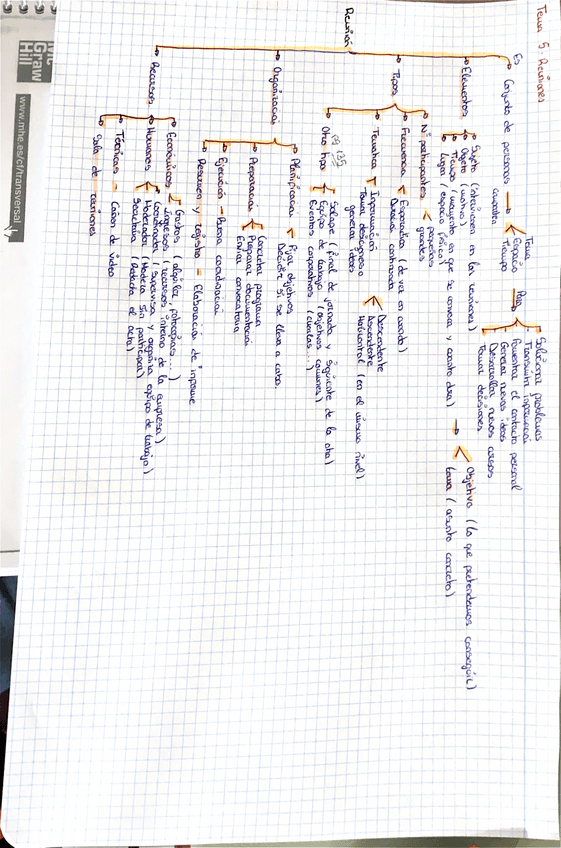 Tema 5: Reuniones
Reunión
Es Conjunto de personas → comparten
Tema
Espacio
Tiempo
Para
Solucionar problemas
Transmitir información
Fomentar el contacto personal
Generar nuevas ideas
Desarrollar nuevos
Tomar decisiones
Elementos
Sujeto (intervienen en las reuniones)
Objeto (motivo) → Objetivo (lo que pretendemos conseguir)
tema (asunto concreto)
Tiempo (momento en que se convoca y cuanto dura)
Lugar (espacio físico)
Tipos
Nº participantes
pequeñas
grandes
Frecuencia
Esporádica (de vez en cuando)
continuada
Temática
Información
Descendente
Ascendente
Horizontal (en el mismo nivel)
Tomar decisiones
generar ideas
pg 135
Otro tipo
Solape (final de jornada y siguiente de la otra)
Equipo de trabajo (objetivos comunes)
Eventos corporativos
Organización
Planificación
Fijar objetivos
Decidir si se lleva a cabo
Preparación
Concretar programa
Preparar documentación
Enviar convocatoria
Ejecución → Buena coordinación
Resumen y registro = Elaboración de informe
Recursos
Económicos
Gastos (alquiler, fotocopias...)
Ingresos (recursos interno de la empresa)
Humanos
Coordinador (supervisa y organiza equipo de trabajo)
Moderador (Modera sin participar)
Secretaria (Redacta el acta)
Técnicos - Cañon de video
Sala de reuniones
Mc
Graw
Hill
www.mhe.es/cf/transversal